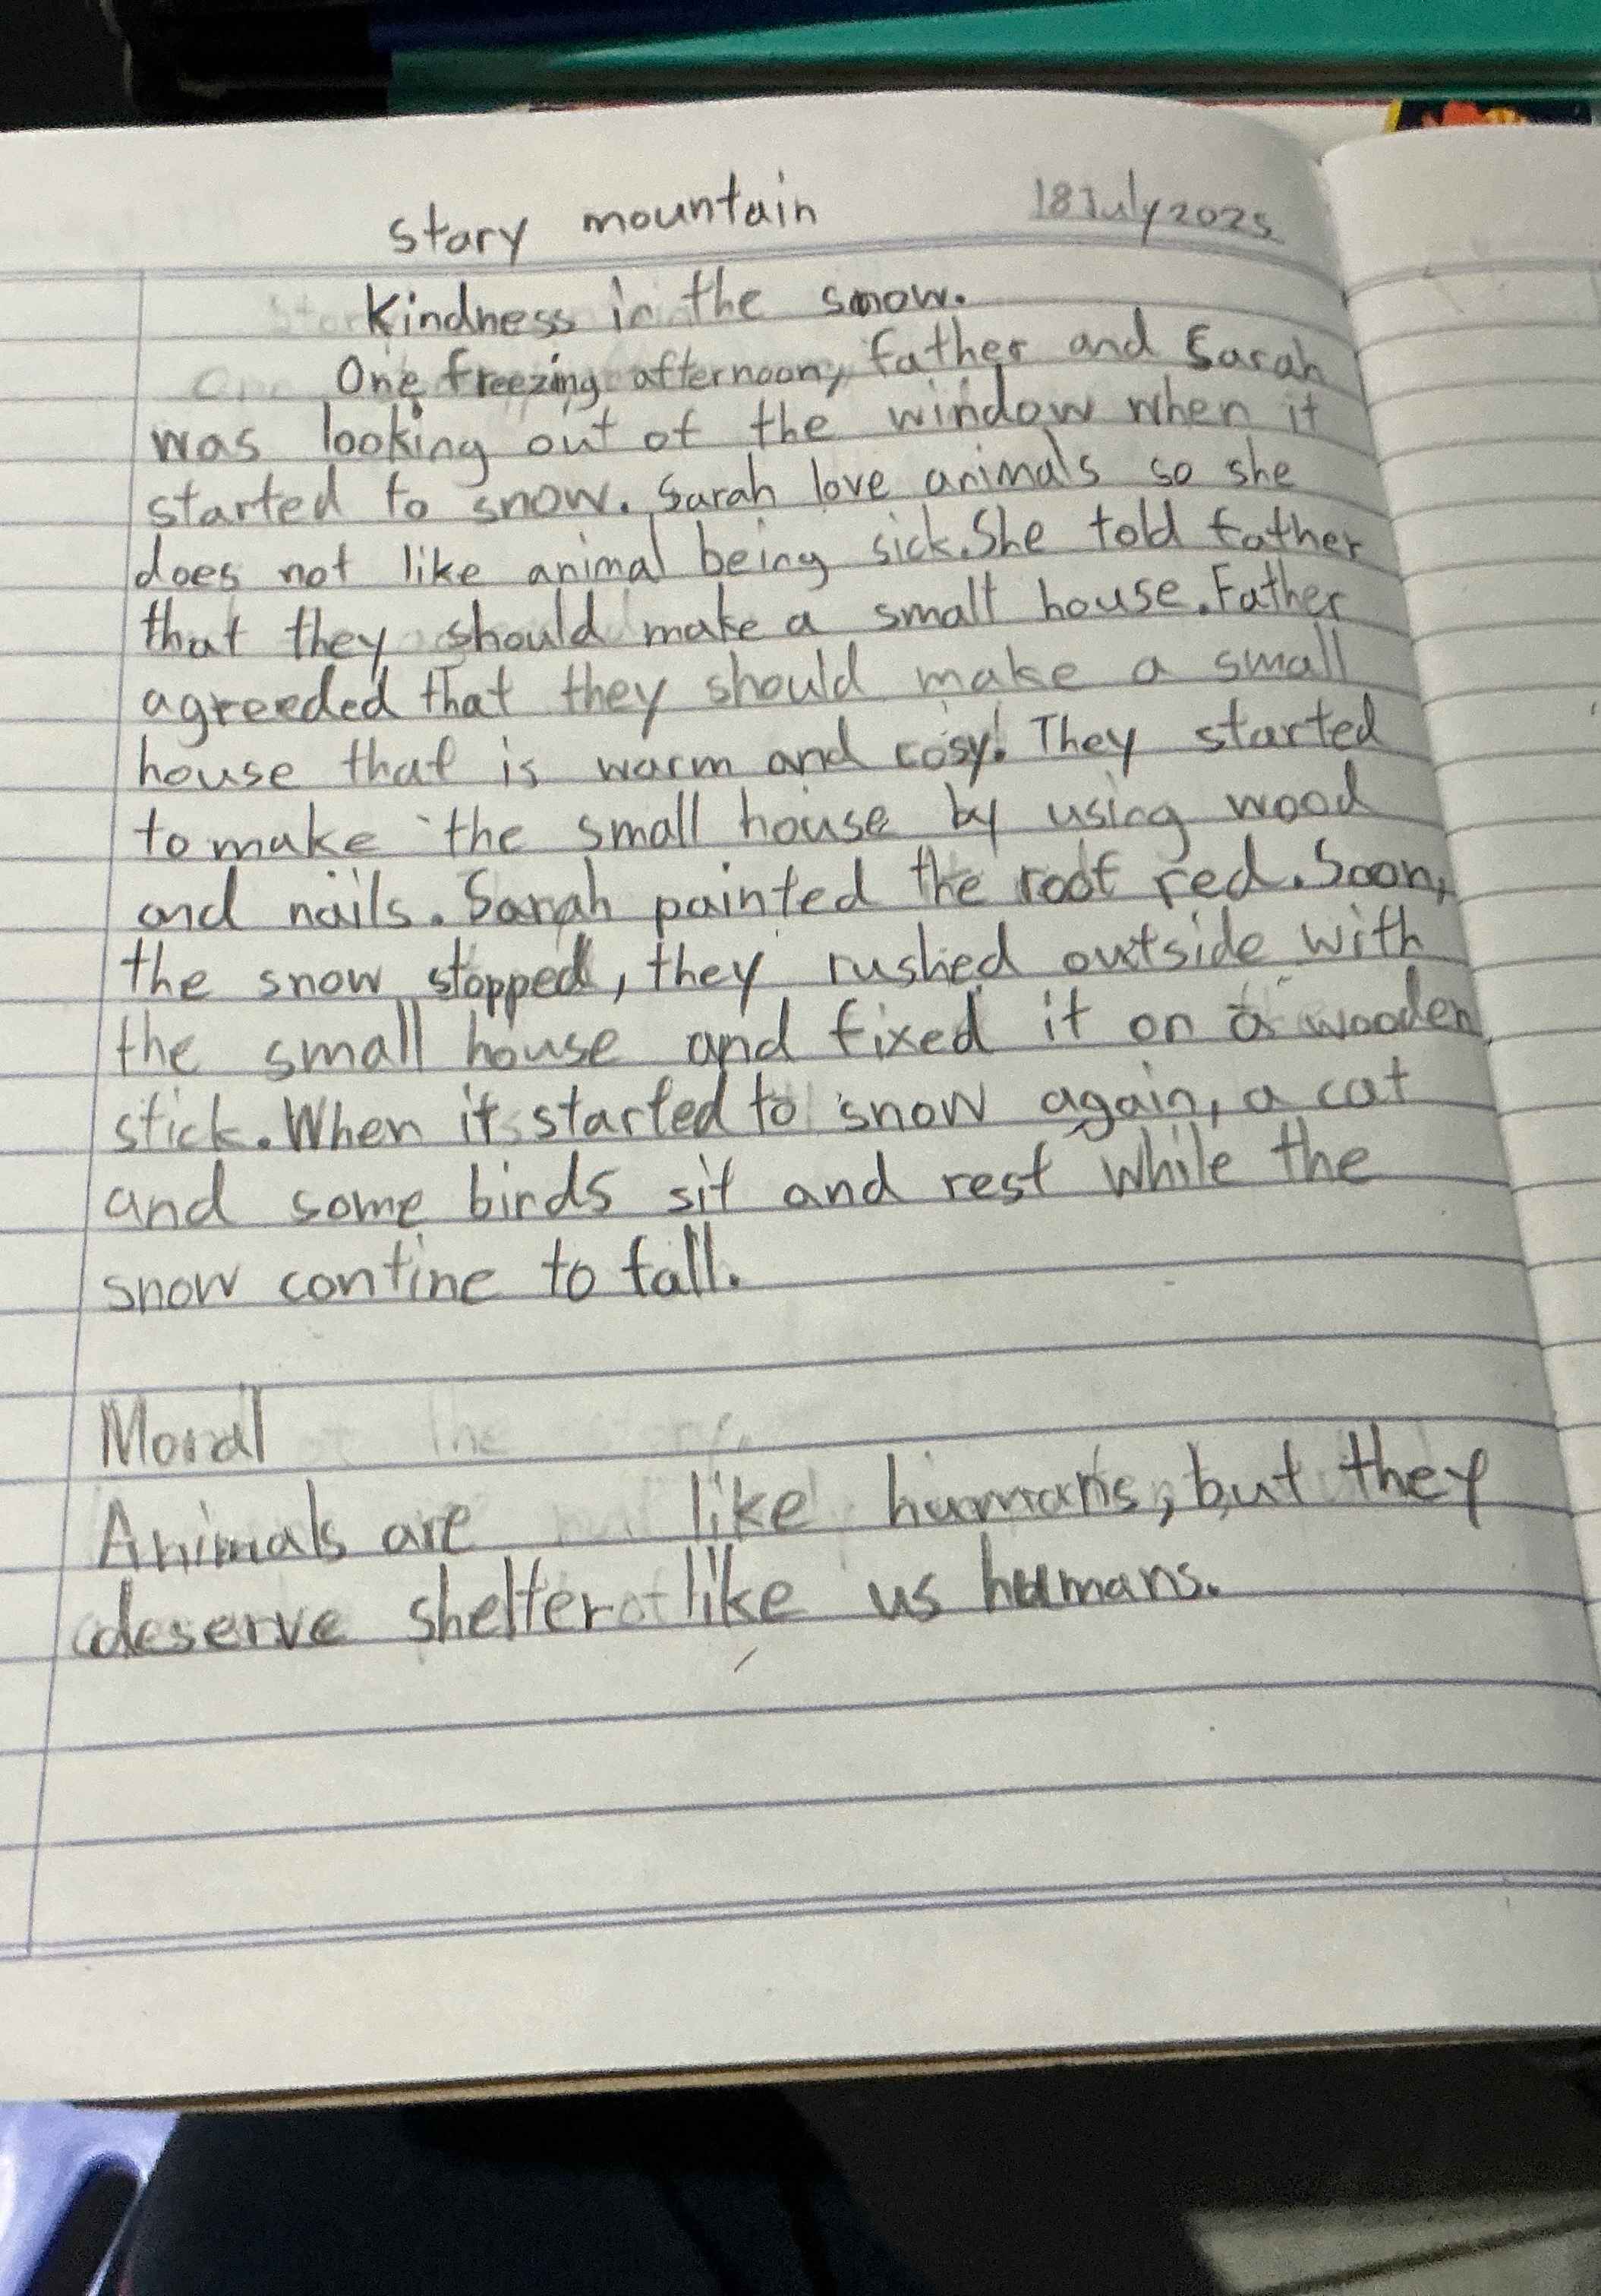 story mountain 18 July 2025
Kindness in the snow.
One freezing afternoon, father and Sarah
was looking out of the window when it
started to snow. Sarah love animals so she
does not like animal being sick. She told father
that they should make a small house. Father
agreeded that they should make a small
house that is warm and cosy. They started
to make the small house by using wood
and nails. Sarah painted the roof red. Soon,
the snow stopped, they rushed outside with
the small house and fixed it on a wooden
stick. When it started to snow again, a cat
and some birds sit and rest while the
snow contine to fall.
Moral
Animals are like humans, but they
deserve shelter like us humans.